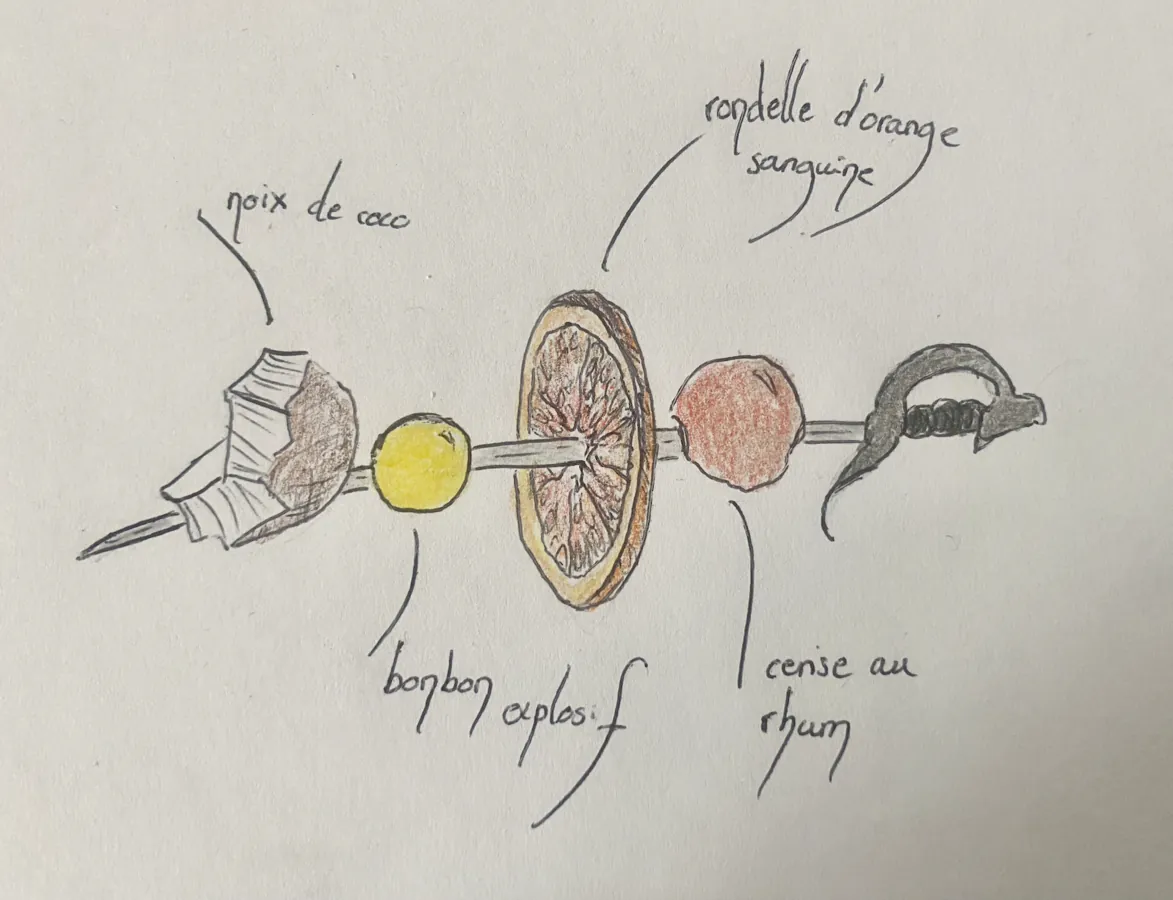 rondelle d'orange
sanguine
noix de coco
bonbon explosif
cerise au
rhum